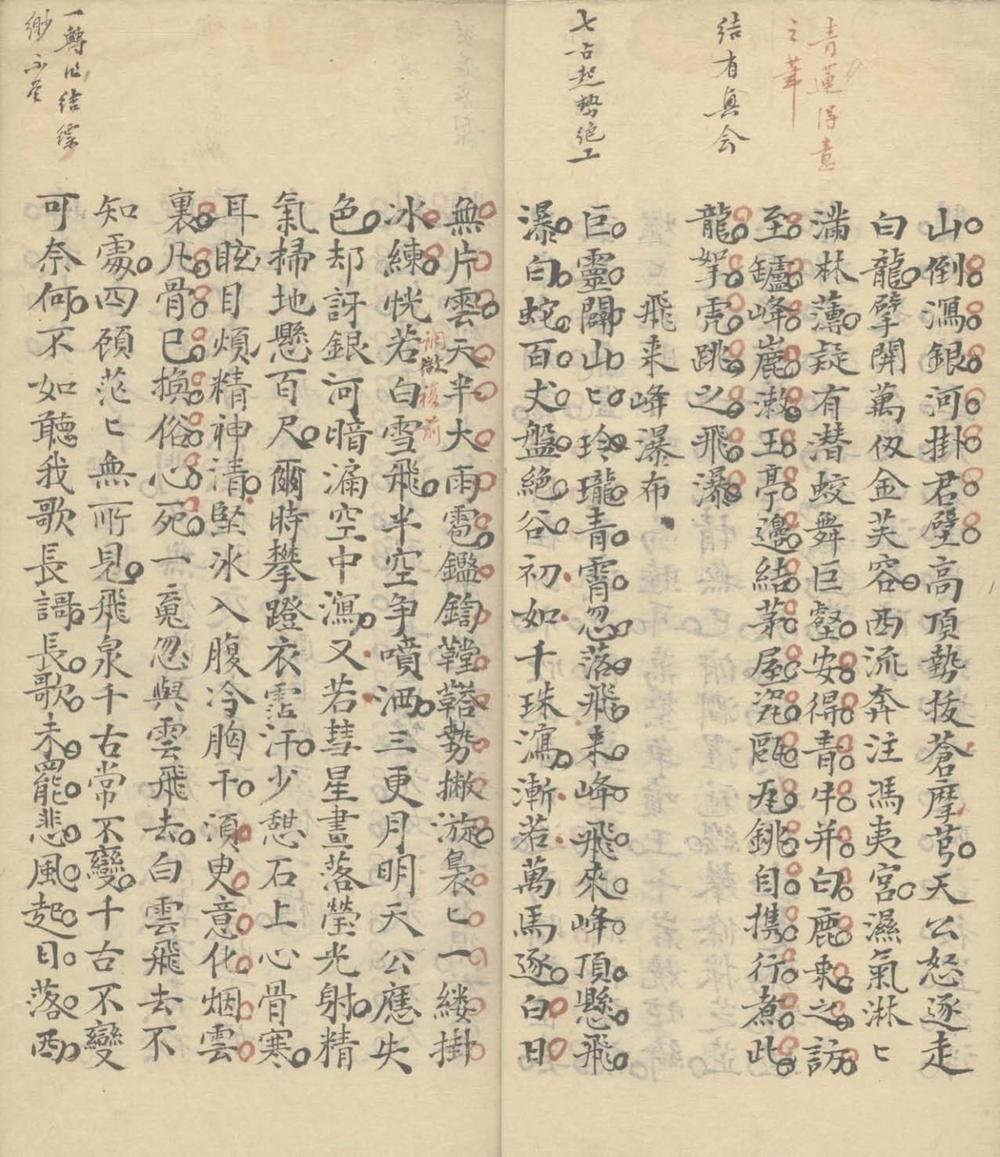 青蓮得意
之筆
結有真会
七古起勢絕工
一轉作結縹
緲不羣
山倒瀉銀河掛君壁高頂勢拔蒼摩芎天公怒逐走
白龍擘開萬仭金芙容西流奔注馮夷宮濕氣淋〻
滿林薄疑有潛蛟舞巨壑安得青牛并白鹿乘之訪
至鑪峰麓潄玉亭邊結茅屋瓷甌瓦銚自携行煮此
龍拏虎跳之飛瀑
飛来峰瀑布
巨靈闢山〻玲瓏青霄忽落飛来峰飛來峰頂懸飛
瀑白蛇百丈盤絕谷初如千珠瀉漸若萬馬逐白日
無片雲天半大雨雹鑑鍧鞺鞳勢撇漩裊〻一縷掛
冰練恍若白雪飛半空争噴洒三更月明天公應失
色却訝銀河暗漏空中瀉又若彗星晝落瑩光射精
氣掃地懸百尺爾時攀蹬衣霑汗少憇石上心骨寒
耳眩目煩精神清堅冰入腹冷胸干須臾意化烟雲
裏凡骨已換俗心死一䰟忽與雲飛去白雲飛去不
知處四顧茫〻無所見飛泉千古常不變千古不變
可奈何不如聽我歌長謌長歌未罷悲風起日落西